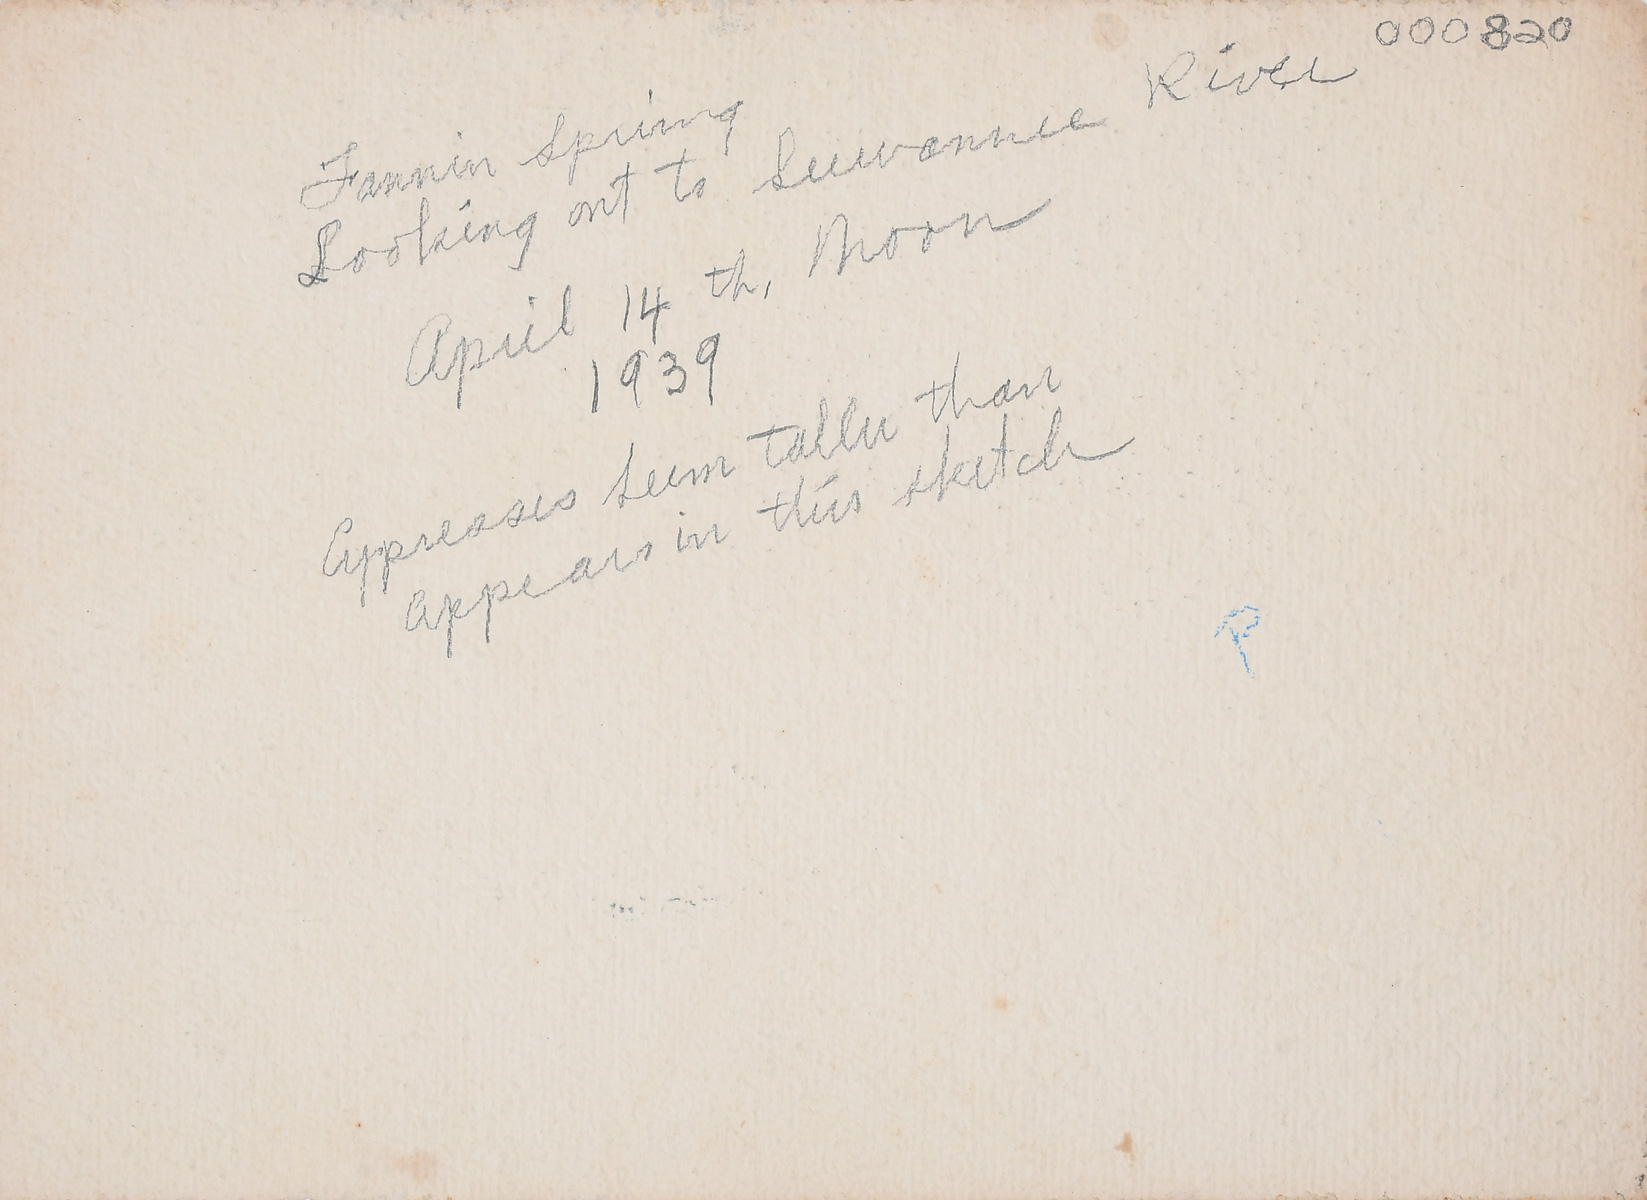 000820
Fannin Spring
Looking out to Suwannee River
April 14 th, Moon
1939
Cypresses seem taller than
appears in this sketch
P